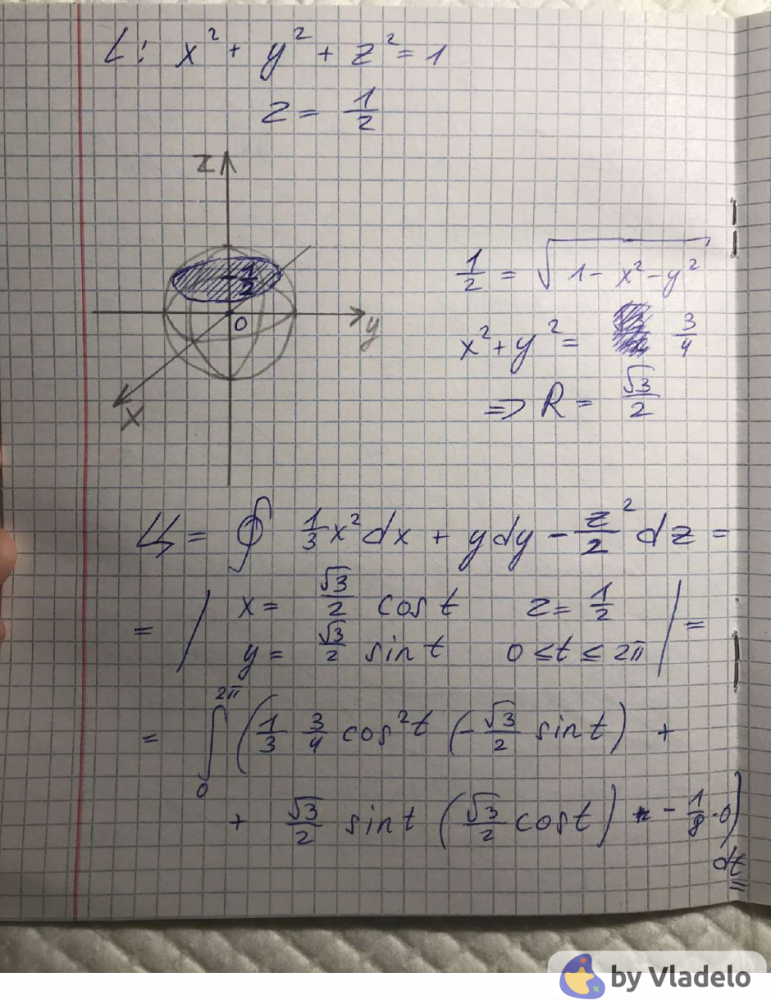 L: x² + y² + z² = 1
z = 1/2
z
1/2
0
y
x
1/2 = √(1 - x² - y²)
x² + y² = 3/4
=> R = √3/2
Ц = ∮ 1/3 x² dx + y dy - z²/2 dz =
= | x = √3/2 cos t z = 1/2
y = √3/2 sin t 0 ≤ t ≤ 2π | =
= ∫₀²π (1/3 3/4 cos² t (-√3/2 sin t) +
+ √3/2 sin t (√3/2 cos t) - 1/8 · 0)
dt =
by Vladelo